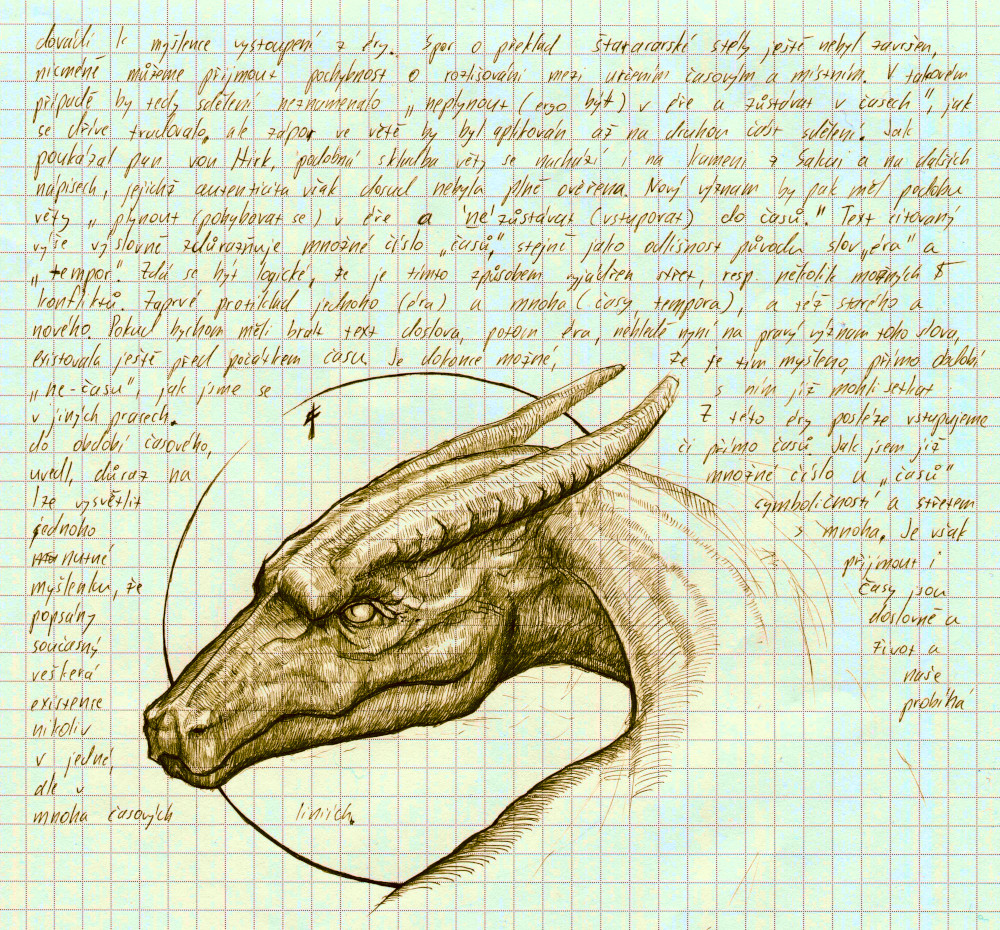 dovádí k myšlence vystoupení z éry. Spor o překlad štararské stély ještě nebyl završen,
nicméně můžeme přijmout pochybnost o rozlišování mezi určením časovým a místním. V takovém
případě by tedy sdělení neznamenalo „neplynout (ergo být) v éře a zůstávat v časech", jak
se dříve trudovalo, ale zápor ve větě by byl aplikován až na druhou část sdělení. Jak
poukázal pan von Hirk, podobná skladba věty se nachází i na kameni z Sakui a na dalších
nápisech, jejichž autenticita však dosud nebyla plně ověřena. Nový význam by pak měl podobu
věty „plynout (pohybovat se) v éře a 'ne'zůstávat (vstupovat) do časů." Text citovaný
výše výslovně zdůrazňuje množné číslo „časů", stejně jako odlišnost původu slov „éra" a
„tempor." Zdá se být logické, že je tímto způsobem vyjádřen střet, resp. několik možných
konfliktů. Zaprvé protiklad jednoho (éra) a mnoha (časy, tempora), a též starého a
nového. Pokud bychom měli brát text doslova, potom éra, nehledě nyní na pravý význam toho slova,
existovala ještě před počátkem času. Je dokonce možné, že je tím myšleno, přímo období
„ne-času", jak jsme se s ním již mohli setkat
v jiných pracech. Z této éry posléze vstupujeme
do období časového, či přímo časů. Jak jsem již
uvedl, důraz na množné číslo u „časů"
lze vysvětlit symboličností a střetem
jednoho s mnoha. Je však
nutné přijmout i
myšlenku, že časy jsou
popsány doslovně a
současný život a
veškerá naše
existence probíhá
nikoliv
v jedné,
ale v
mnoha časových liniích.